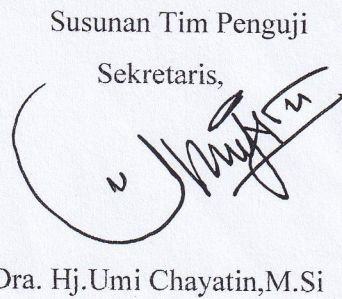 Susunan Tim Penguji
Sekretaris,
Dra. Hj.Umi Chayatin,M.Si